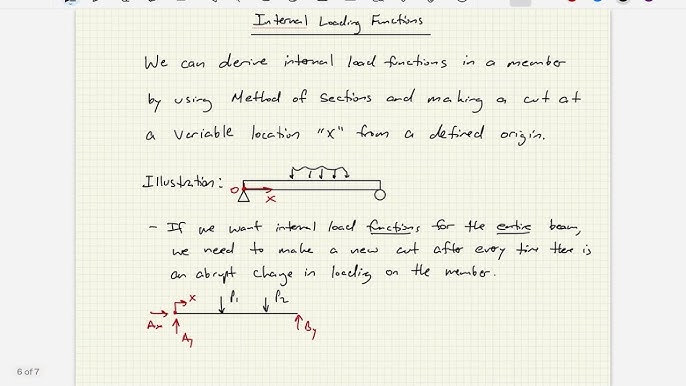 Internal Loading Functions
We can derive internal load functions in a member
by using Method of Sections and making a cut at
a variable location "x" from a defined origin.
Illustration:
O
x
- If we want internal load functions for the entire beam,
we need to make a new cut after every time there is
an abrupt change in loading on the member.
x P1 P2
Ax
Ay By
6 of 7